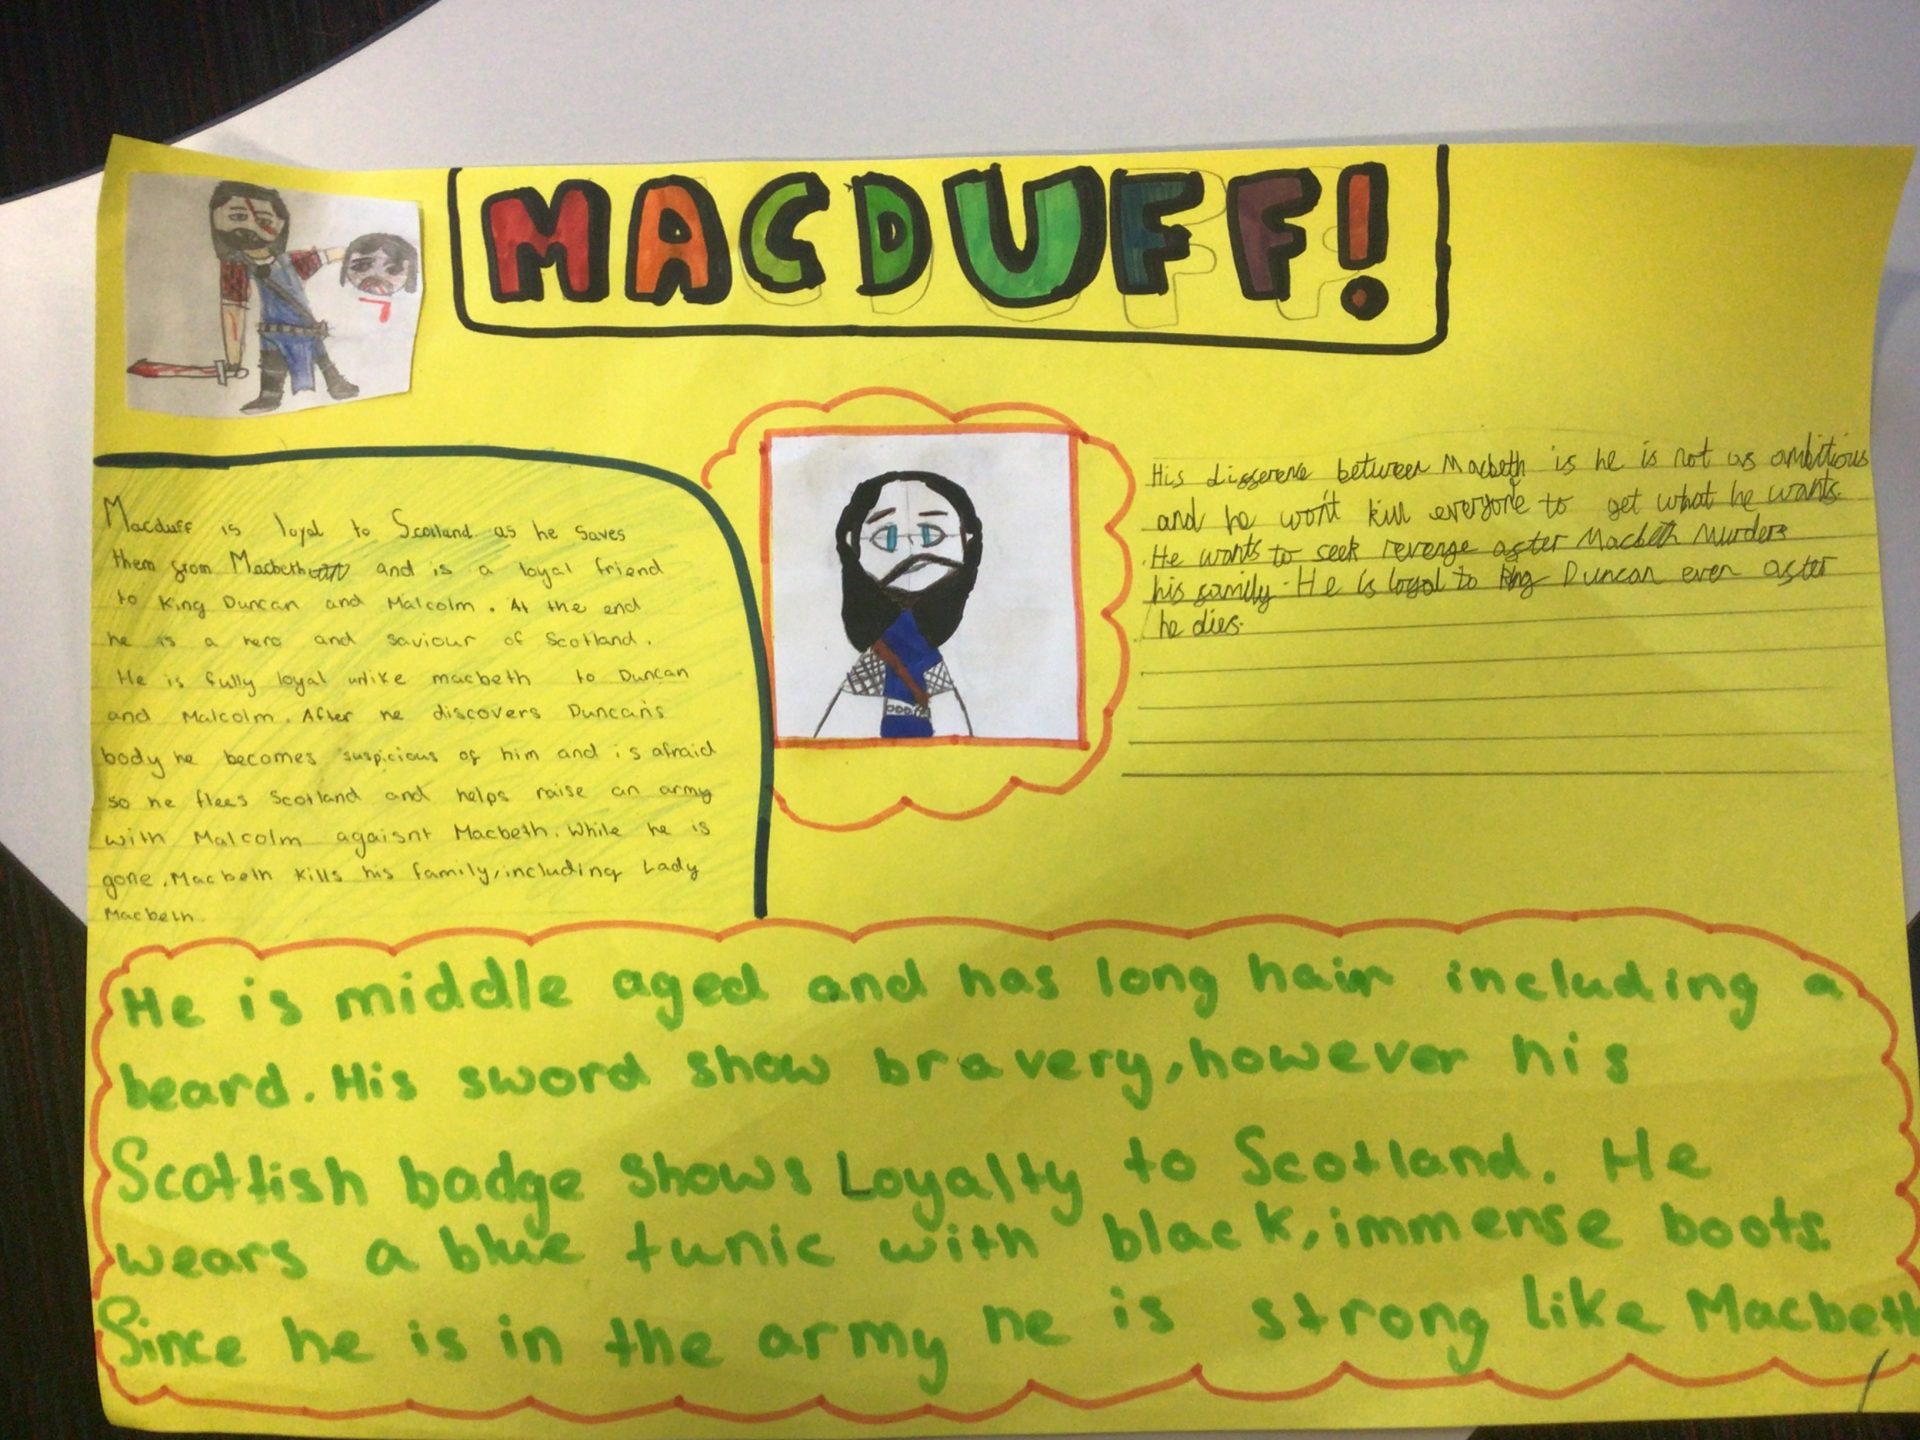 MACDUFF!
Macduff is loyal to Scotland as he saves
them from Macbeth and is a loyal friend
to King Duncan and Malcolm. At the end
he is a hero and saviour of Scotland.
He is fully loyal unlike macbeth to Duncan
and Malcolm. After he discovers Duncan's
body he becomes suspicious of him and is afraid
so he flees Scotland and helps raise an army
with Malcolm agaisnt Macbeth. While he is
gone, Macbeth kills his family, including Lady
Macbeth.
His difference between Macbeth is he is not as ambitious
and he won't kill everyone to get what he wants.
He wants to seek revenge after Macbeth murders
his family. He is loyal to Duncan even after
he dies.
He is middle aged and has long hair including a
beard. His sword show bravery, however his
Scottish badge shows Loyalty to Scotland. He
wears a blue tunic with black, immense boots.
Since he is in the army he is strong like Macbeth